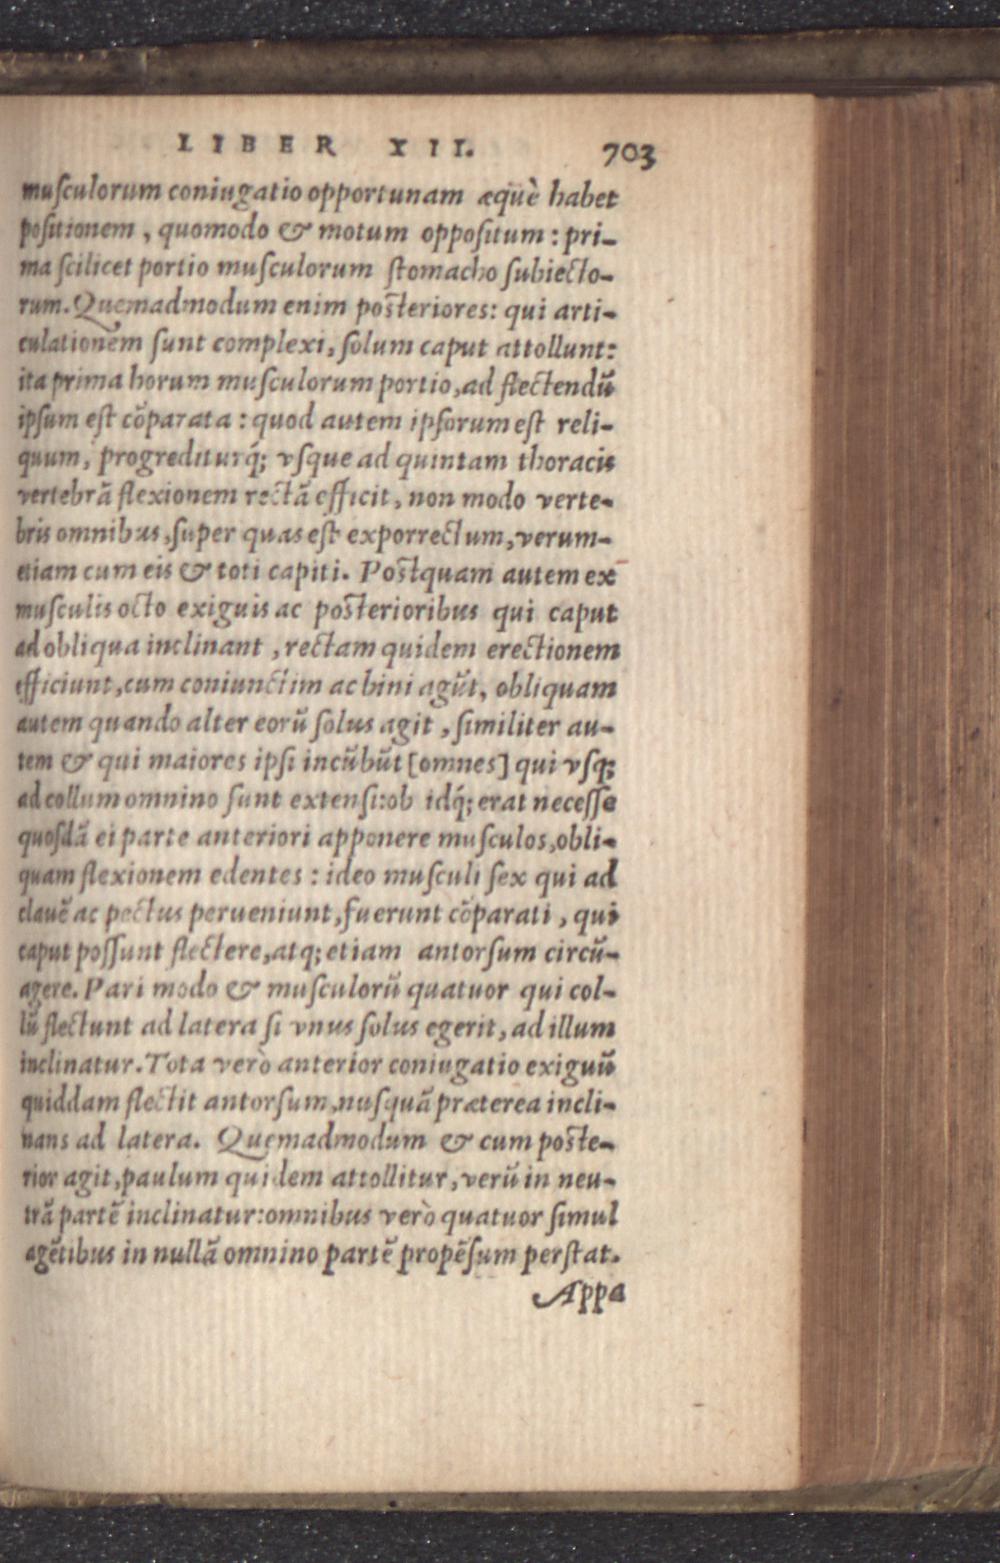 LIBER XII. 703
muſculorum coniugatio opportunam æquè habet
poſitionem, quomodo & motum oppoſitum: pri-
ma ſcilicet portio muſculorum ſtomacho ſubiecto-
rum. Quemadmodum enim poſteriores: qui arti-
culationem ſunt complexi, ſolum caput attollunt:
ita prima horum muſculorum portio, ad flectendū
ipſum eſt cōparata: quod autem ipſorum eſt reli-
quum, progrediturq́; vſque ad quintam thoracis
vertebrā flexionem rectā efficit, non modo verte-
bris omnibus, ſuper quas eſt exporrectum, verum-
etiam cum eis & toti capiti. Poſtquam autem ex
muſculis octo exiguis ac poſterioribus qui caput
ad obliqua inclinant, rectam quidem erectionem
efficiunt, cum coniunctim ac bini agūt, obliquam
autem quando alter eorū ſolus agit, ſimiliter au-
tem & qui maiores ipſi incūbūt [omnes] qui vſq;
ad collum omnino ſunt extenſi: ob idq́; erat neceſſe
quoſdā ei parte anteriori apponere muſculos, obli-
quam flexionem edentes: ideo muſculi ſex qui ad
clauē ac pectus perueniunt, fuerunt cōparati, qui
caput poſſunt flectere, atq; etiam antorſum circū-
agere. Pari modo & muſculorū quatuor qui col-
lū flectunt ad latera ſi vnus ſolus egerit, ad illum
inclinatur. Tota verò anterior coniugatio exiguū
quiddam flectit antorſum, nuſquā præterea incli-
nans ad latera. Quemadmodum & cum poſte-
rior agit, paulum quidem attollitur, verū in neu-
trā partē inclinatur: omnibus verò quatuor ſimul
agētibus in nullā omnino partē propēſum perſtat.
Appa